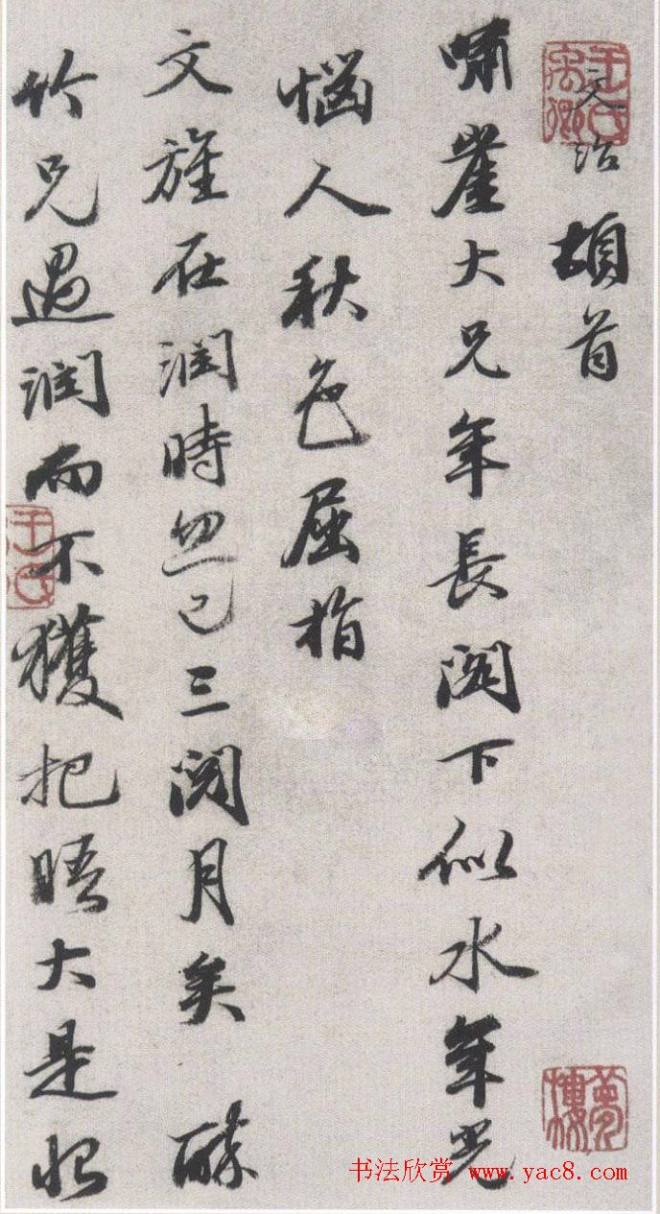 王氏禹卿
文治頓首
嘯崖大兄年長閣下似水年光
惱人秋色屈指
文旌在潤時忽已三閱月矣
竹兄過潤而不獲把晤大是
夢樓
王氏
书法欣赏 www.yac8.com